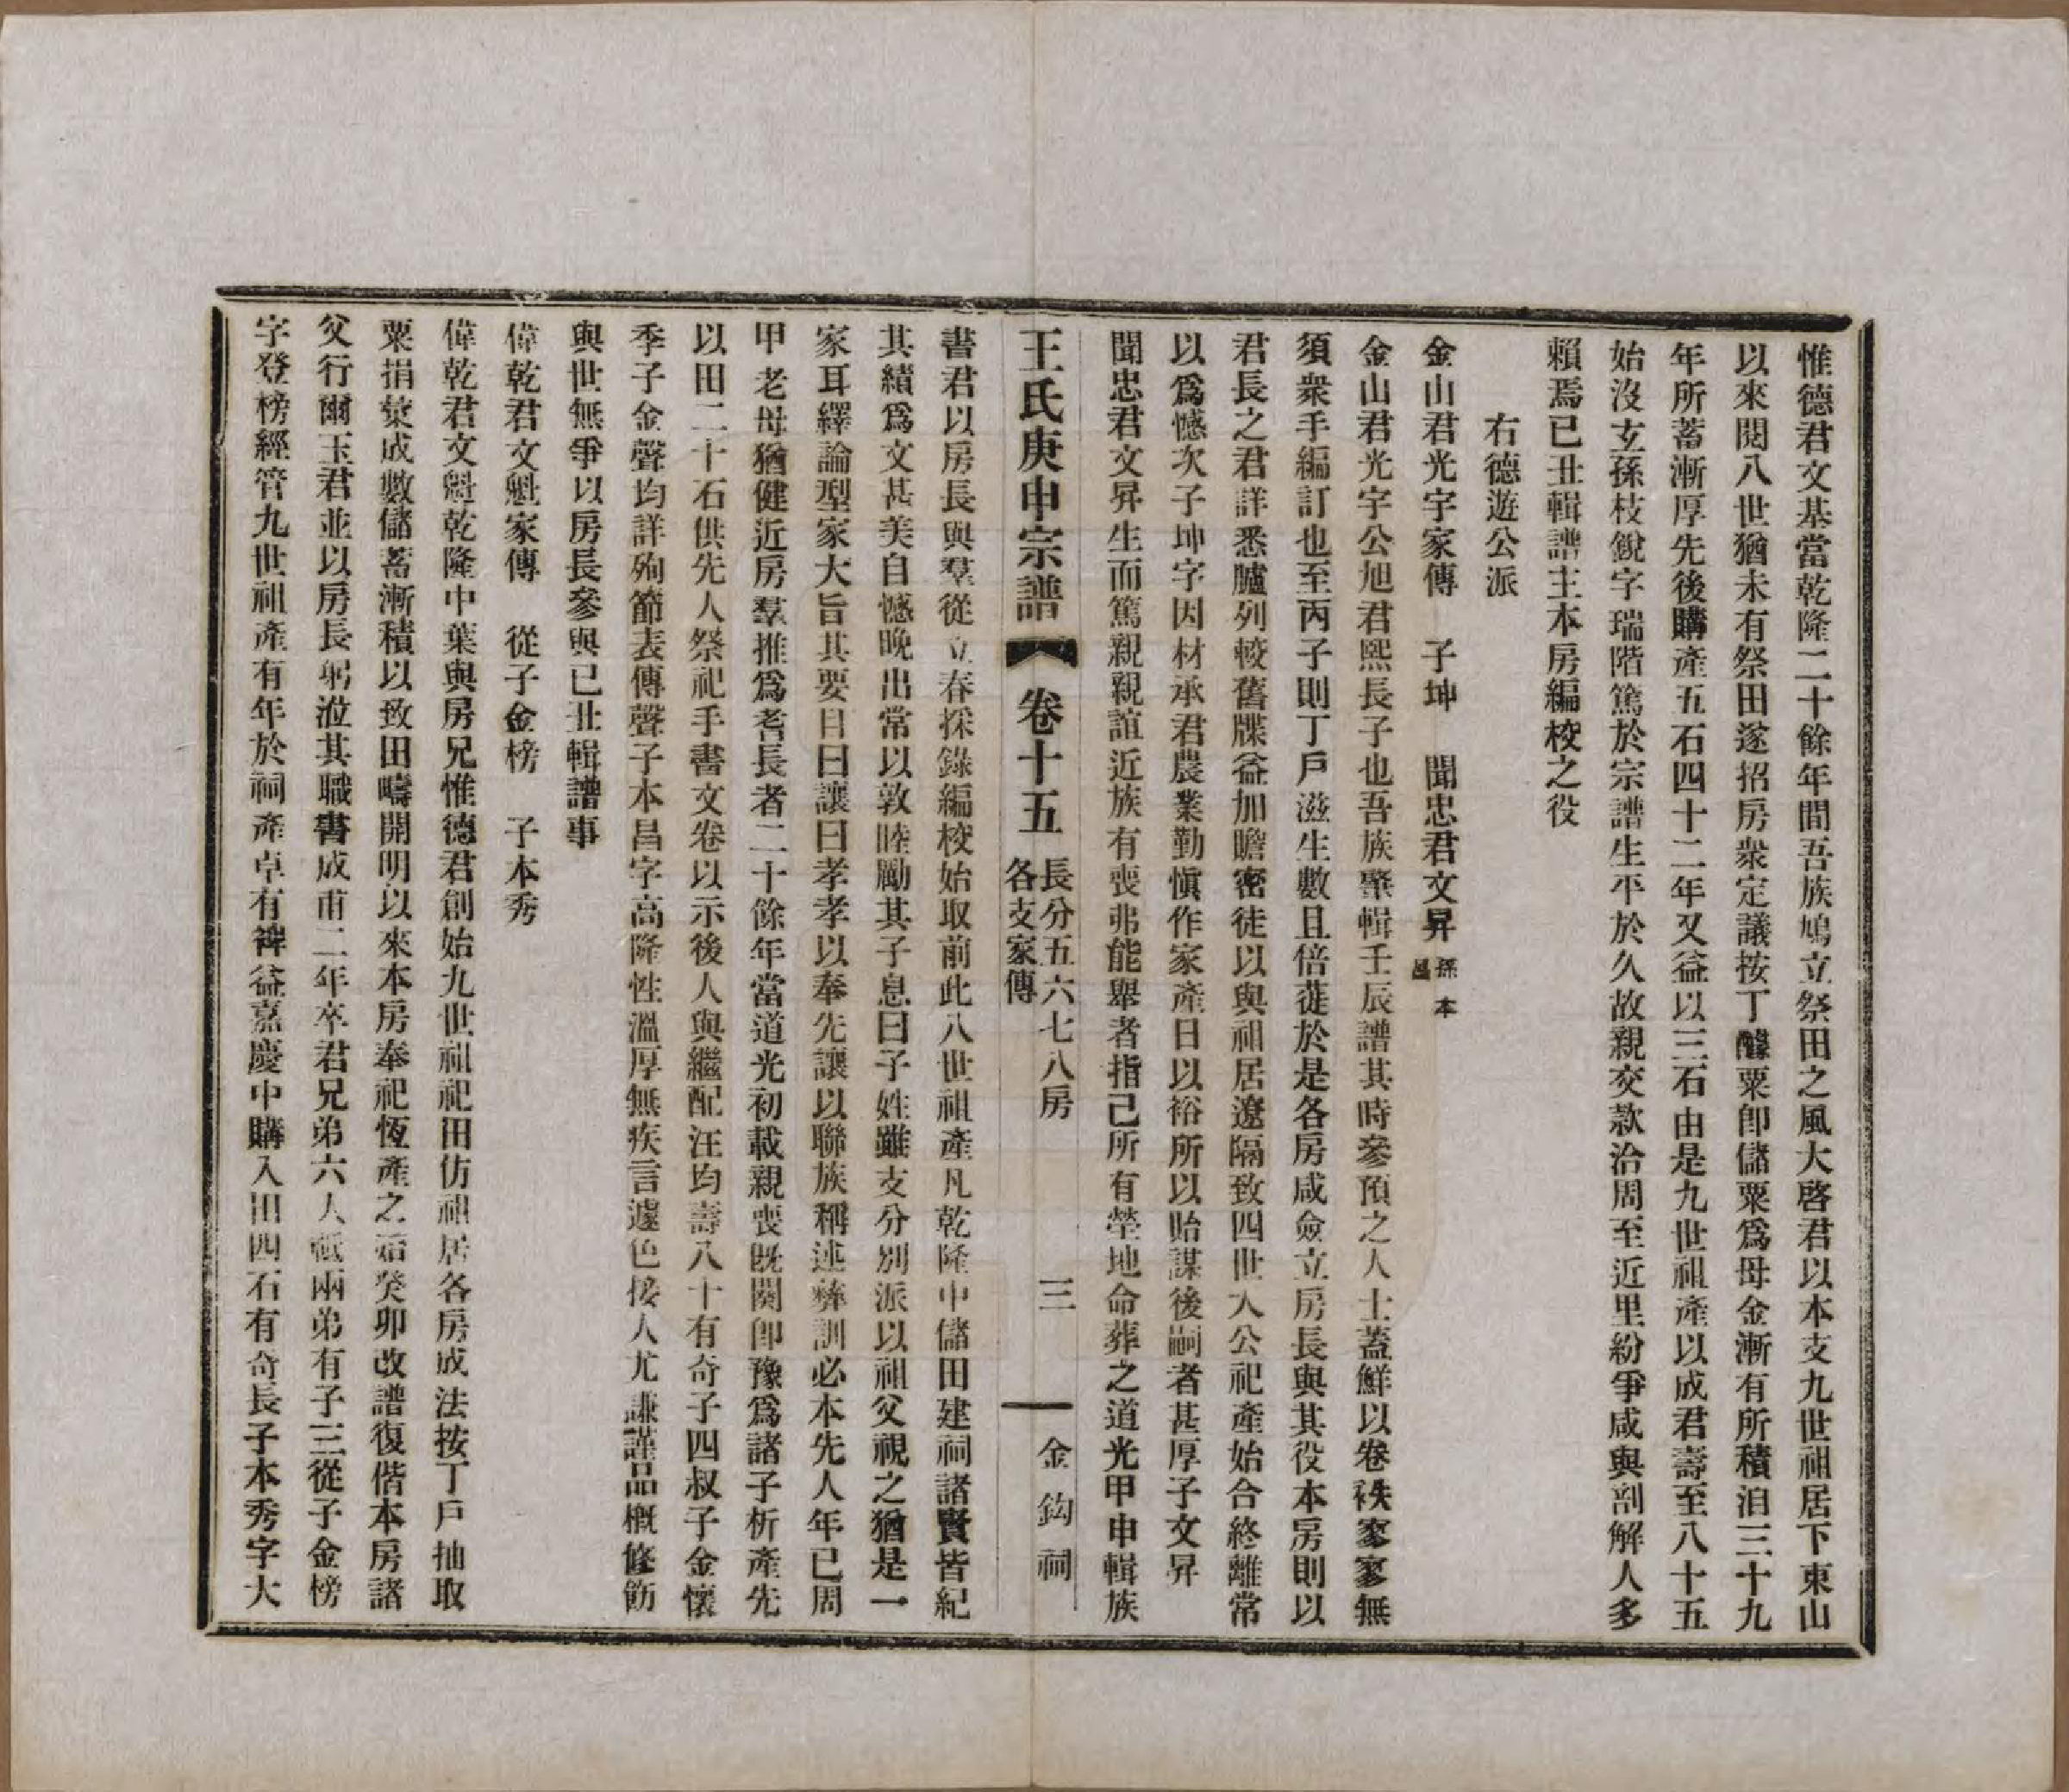 惟德君文基當乾隆二十餘年間吾族鳩立祭田之風大啓君以本支九世祖居下東山
以來閱八世猶未有祭田遂招房衆定議按丁醵粟卽儲粟爲母金漸有所積洎三十九
年所蓄漸厚先後購產五石四十二年又益以三石由是九世祖產以成君壽至八十五
始沒玄孫枝銳字瑞階篤於宗譜生平於久故親交款洽周至近里紛爭咸與剖解人多
賴焉已丑輯譜主本房編校之役
右德遊公派
金山君光宇家傳　子坤　聞忠君文昇 孫本昌
金山君光字公旭君熙長子也吾族肇輯壬辰譜其時參預之人士蓋鮮以卷袟寥寥無
須衆手編訂也至丙子則丁戶滋生數且倍蓰於是各房咸僉立房長與其役本房則以
君長之君詳悉臚列較舊牒益加瞻密徒以與祖居遼隔致四世大公祀產始合終離常
以爲憾次子坤字因材承君農業勤愼作家產日以裕所以貽謀後嗣者甚厚子文昇
聞忠君文昇生而篤親親誼近族有喪弗能舉者指己所有塋地命葬之道光甲申輯族
王氏庚申宗譜　卷十五　長分五六七八房各支家傳　三　金鈎祠
書君以房長與羣從立春採錄編校始取前此八世祖產凡乾隆中儲田建祠諸賢皆紀
其續爲文甚美自憾晩出常以敦睦勵其子息曰子姓雖支分別派以祖父視之猶是一
家耳繹論型家大旨其要目曰讓曰孝孝以奉先讓以聯族稱述彝訓必本先人年已周
甲老母猶健近房羣推爲耆長者二十餘年當道光初載親喪既闋卽豫爲諸子析產先
以田二十石供先人祭祀手書文卷以示後人與繼配汪均壽八十有奇子四叔子金懷
季子金聲均詳殉節表傳聲子本昌字高隆性溫厚無疾言遽色接人尤謙謹品概修飭
與世無爭以房長參與已丑輯譜事
偉乾君文魁家傳　從子金榜　子本秀
偉乾君文魁乾隆中葉與房兄惟德君創始九世祖祀田仿祖居各房成法按丁戶抽取
粟捐彙成數儲蓄漸積以致田疇開明以來本房奉祀恆產之始癸卯改譜復偕本房諸
父行爾玉君並以房長躬涖其職書成甫二年卒君兄弟六人祗兩弟有子三從子金榜
字登榜經管九世祖產有年於祠產卓有裨益嘉慶中購入田四石有奇長子本秀字大